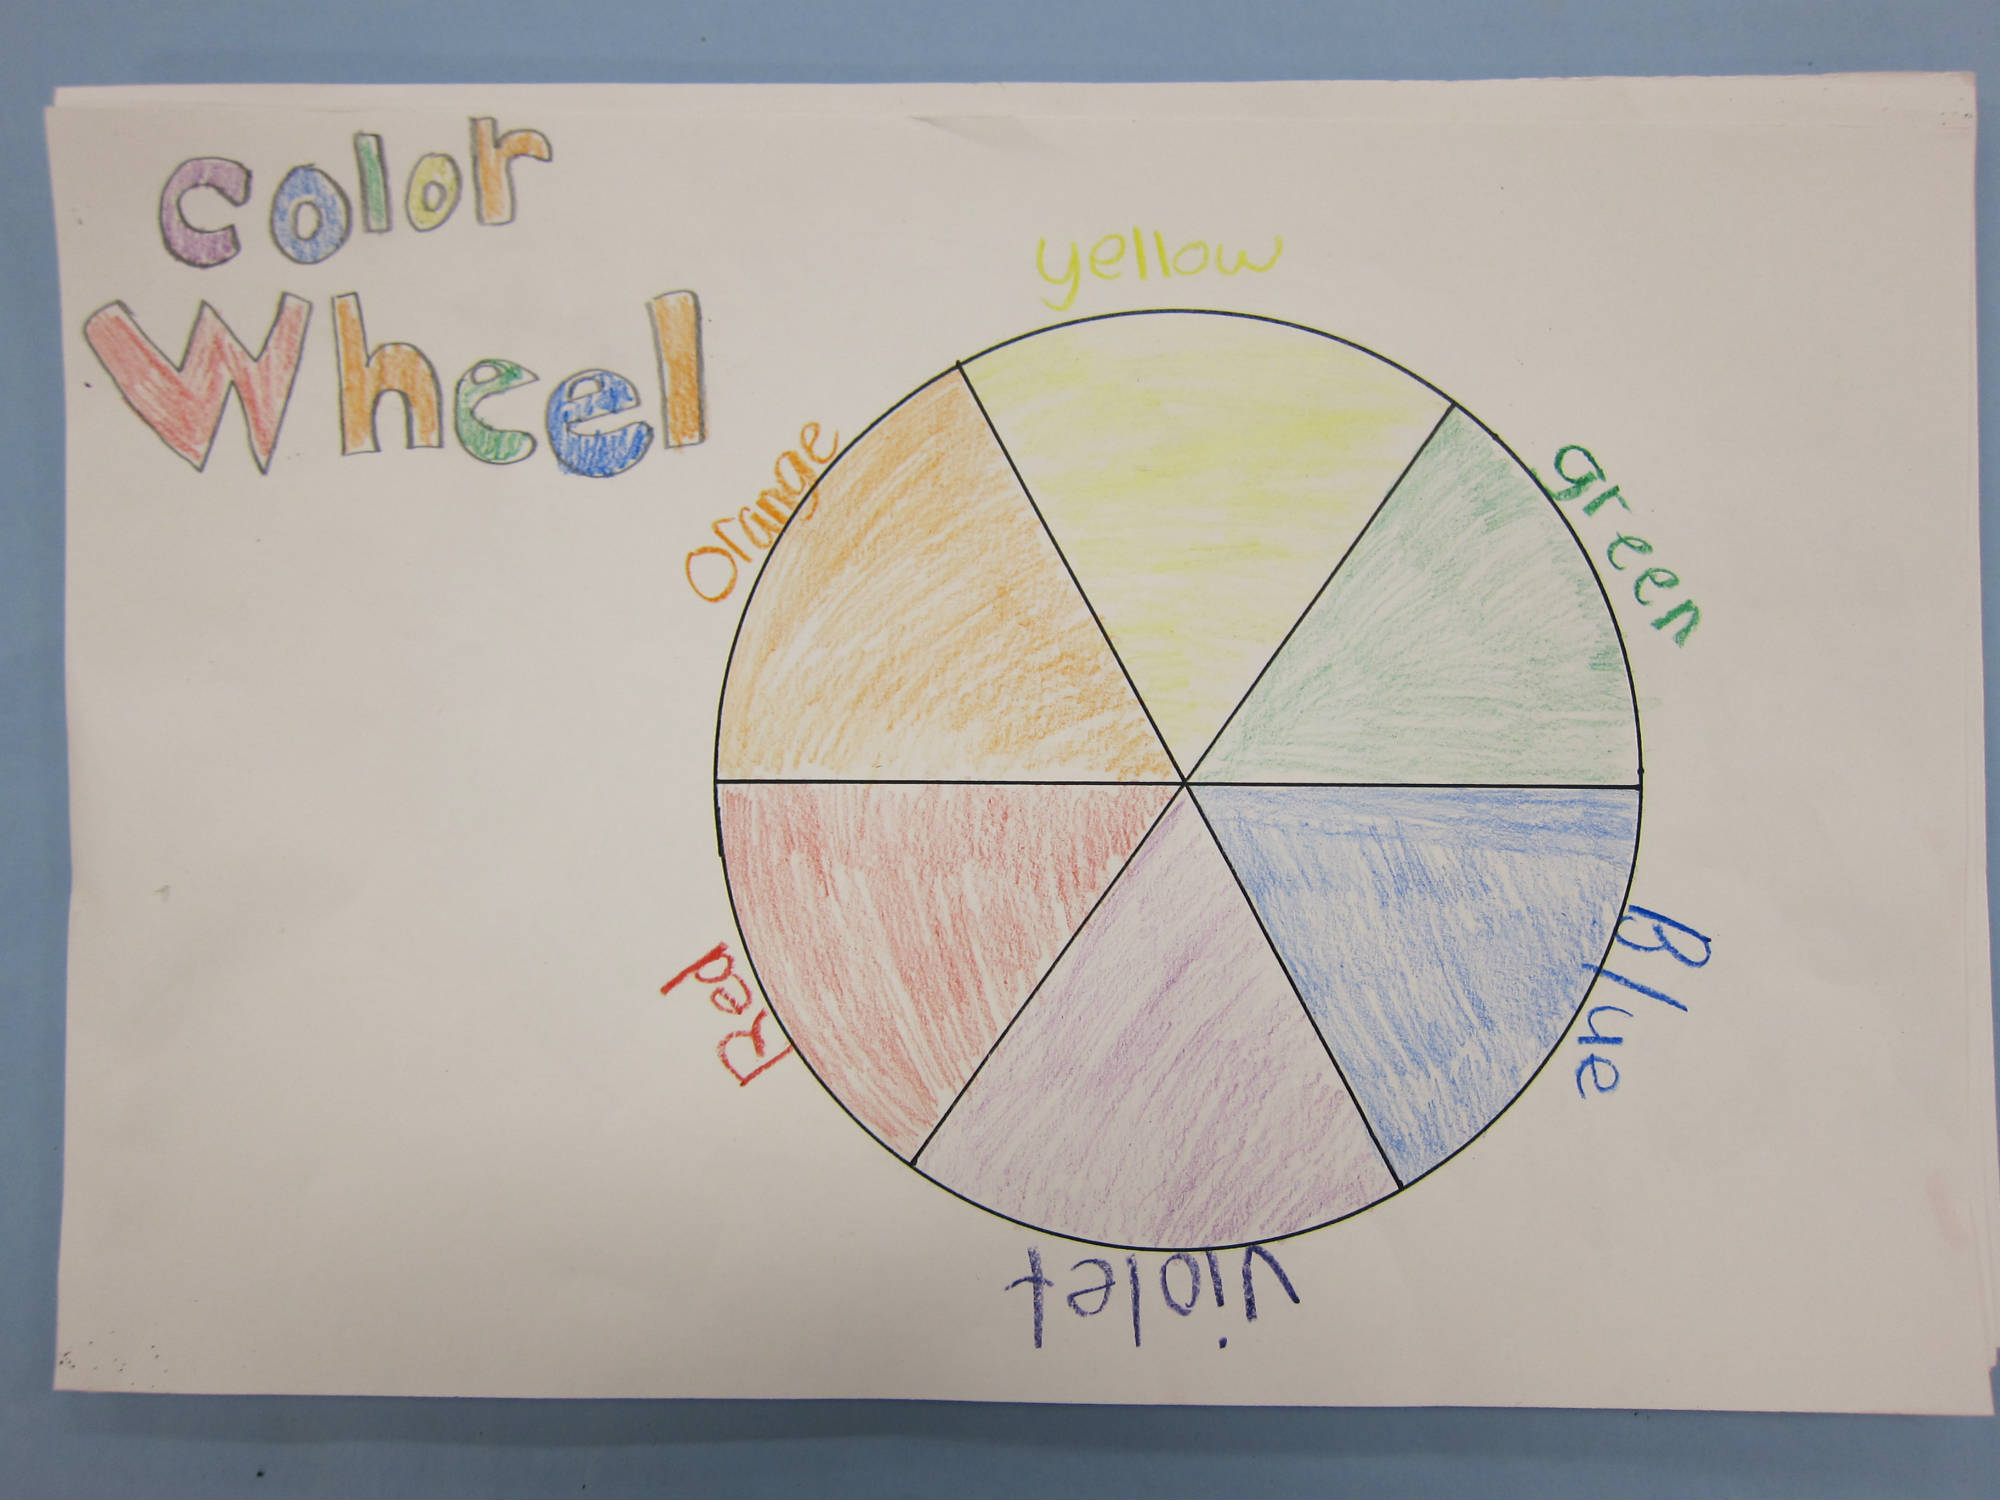 Color
Wheel
yellow
green
Blue
violet
Red
Orange